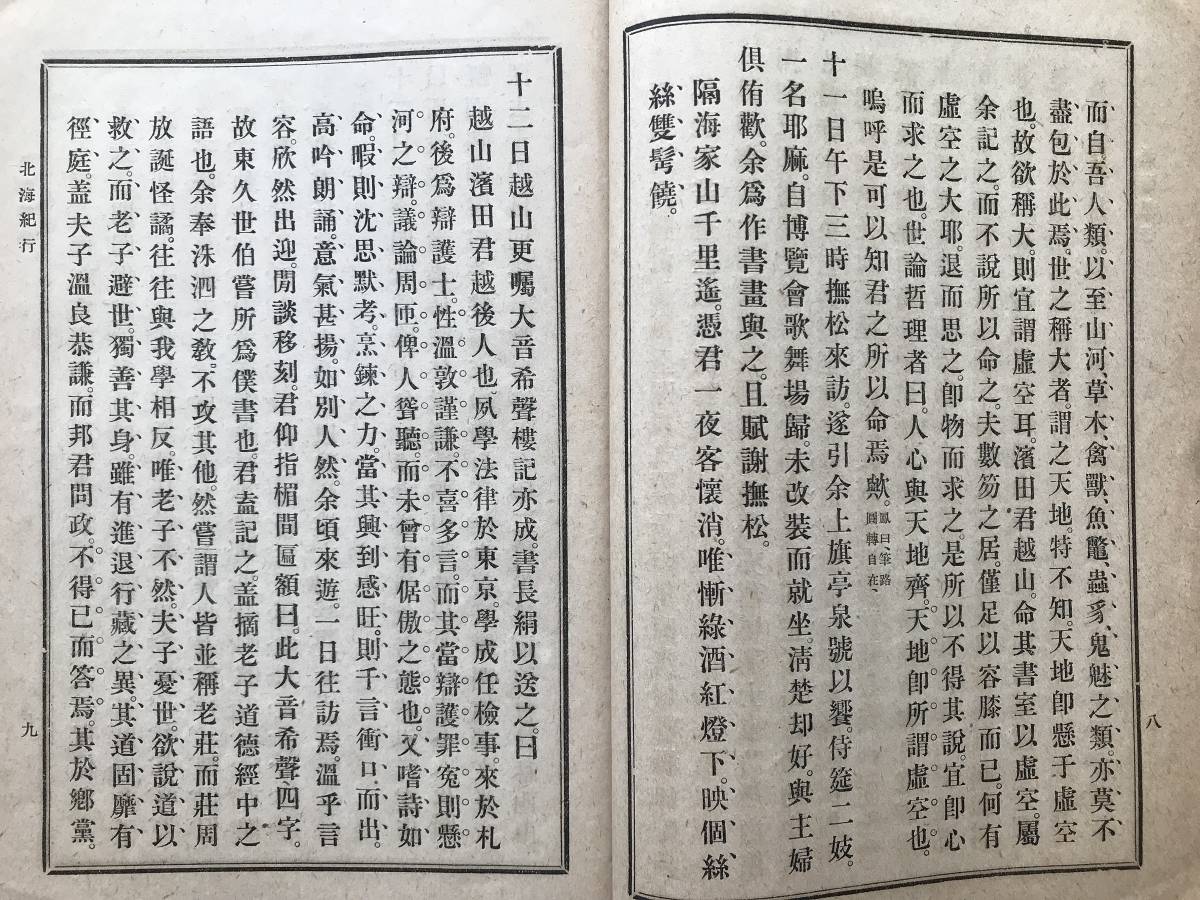 而自吾人類。以至山河、草木、禽獸、魚鼈、蟲豸、鬼魅之類。亦莫不
盡包於此焉。世之稱大者。謂之天地。特不知天地卽懸于虛空
也。故欲稱大。則宜謂虛空耳。濱田君越山。命其書室以虛空。屬
余記之。而不說所以命之。夫數笏之居。僅足以容膝而已。何有
虛空之大耶。退而思之。卽物而求之。是所以不得其說。宜卽心
而求之也。世論哲理者曰。人心與天地齊。天地卽所謂虛空也。
嗚呼是可以知君之所以命焉歟。鳳曰、筆路圓轉自在、
十一日午下三時撫松來訪。遂引余上旗亭泉號以饗。侍筵二妓。
一名耶麻。自博覽會歌舞場歸。未改裝而就坐。淸楚却好。與主婦
俱侑歡。余爲作書畫與之。且賦謝撫松。
隔海家山千里遙。憑君一夜客懷消。唯慚綠酒紅燈下。映個絲
絲雙髩饒。
八
十二日越山更囑大音希聲樓記亦成。書長絹以送之。曰
越山濱田君越後人也。夙學法律於東京。學成任檢事。來於札
府。後爲辯護士。性溫敦謹謙。不喜多言。而其當辯護罪冤則懸
河之辯。議論周匝。俾人聳聽。而未曾有倨傲之態也。又嗜詩如
命。暇則沈思默考。烹鍊之力。當其興到感旺。則千言衝口而出。
高吟朗誦。意氣甚揚。如別人然。余頃來遊。一日往訪焉。溫乎言
容。欣然出迎。閒談移刻。君仰指楣間匾額曰。此大音希聲四字。
故東久世伯嘗所爲僕書也。君盍記之。盖摘老子道德經中之
語也。余奉洙泗之敎。不攻其他。然嘗謂人皆並稱老莊。而莊周
放誕怪譎。往往與我學相反。唯老子不然。夫子憂世。欲說道以
救之。而老子避世。獨善其身。雖有進退行藏之異。其道固靡有
徑庭。盖夫子溫良恭謙。而邦君問政。不得已而答焉。其於鄕黨。
北海紀行
九